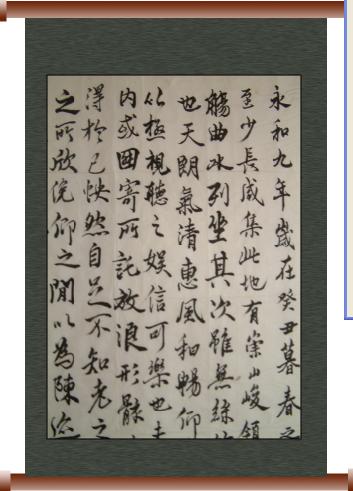 永和九年歲在癸丑暮春之
至少長咸集此地有崇山峻領
觴曲水列坐其次雖無絲竹
也天朗氣清惠風和暢仰
以極視聽之娛信可樂也夫
内或因寄所託放浪形骸
得於己怏然自足不知老之
之所欣俛仰之閒以為陳迹